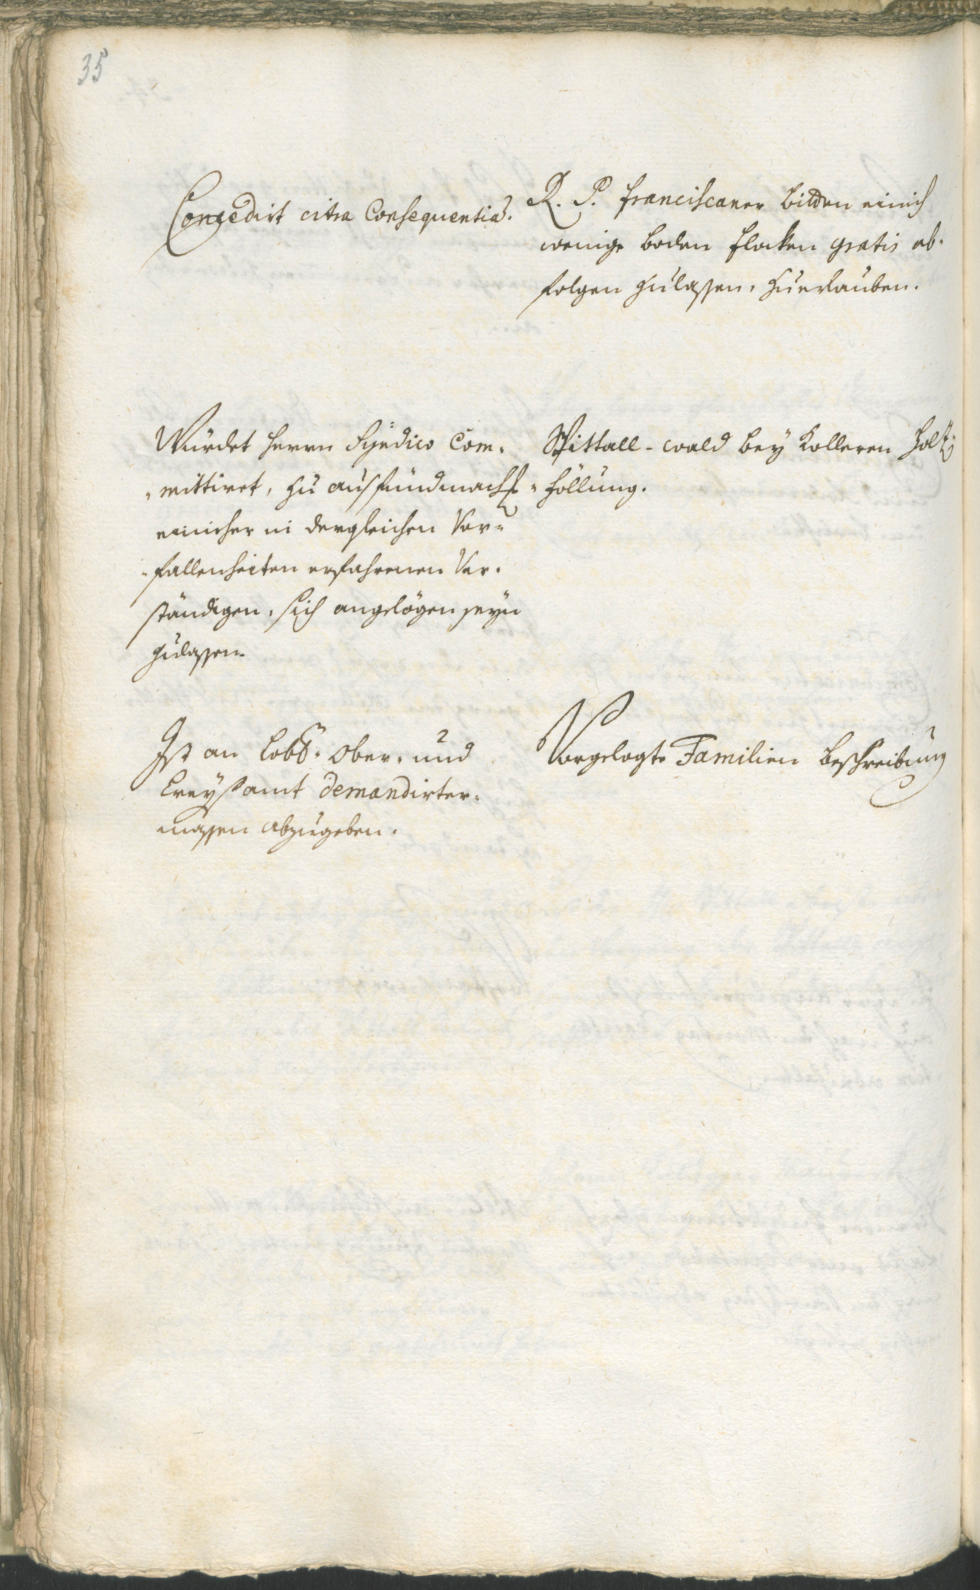 35
Concedirt citra Consequentiã.
R. P. Franciscaner bitten einich
wenige boden flecken gratis ab-
folgen zulassen, zuerlauben.
Würdet Herrn Syndico Com-
mittiret, zu ausfündmach-
einicher in dergleichen Vor-
fallenheiten erfahrenen Ver-
ständigen, sich angelögen seyn
zulassen.
Spittall-wald bey Kolleren Holtz
föllung.
Ist an löbl. Ober- und
Creyßamt demandirter-
massen abzugeben.
Vorgelegte Familien beschreibung